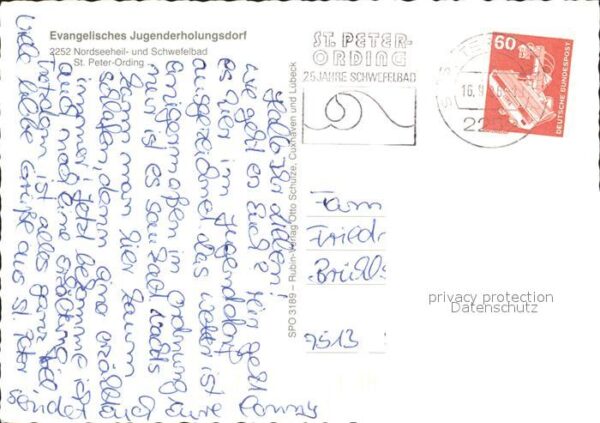 Evangelisches Jugenderholungsdorf
2252 Nordseeheil- und Schwefelbad
St. Peter-Ording
ST. PETER-
ORDING
25 JAHRE SCHWEFELBAD
60
DEUTSCHE BUNDESPOST
16.9.
225
Hallo Ihr Lieben!
Wie geht es Euch? Mir geht
es hier im Jugenddorf
ausgezeichnet. Das Wetter ist
einigermaßen in Ordnung
nur ist es saukalt nachts
kann man hier kaum
schlafen, dann eine erzählt
immer, jetzt bekomme ich
auch noch eine Erkältung.
Trotzdem ist alles ganz toll
Viele liebe Grüße aus St. Peter
sendet Euch Eure Conny
SPO 3189 – Rubin-Verlag Otto Schulze, Cuxhaven und Lübeck
Fam
Friedr
Brühls
7513
privacy protection
Datenschutz